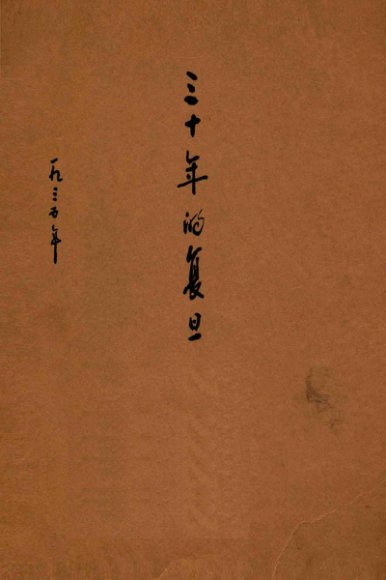 三十年的复旦
一九三五年